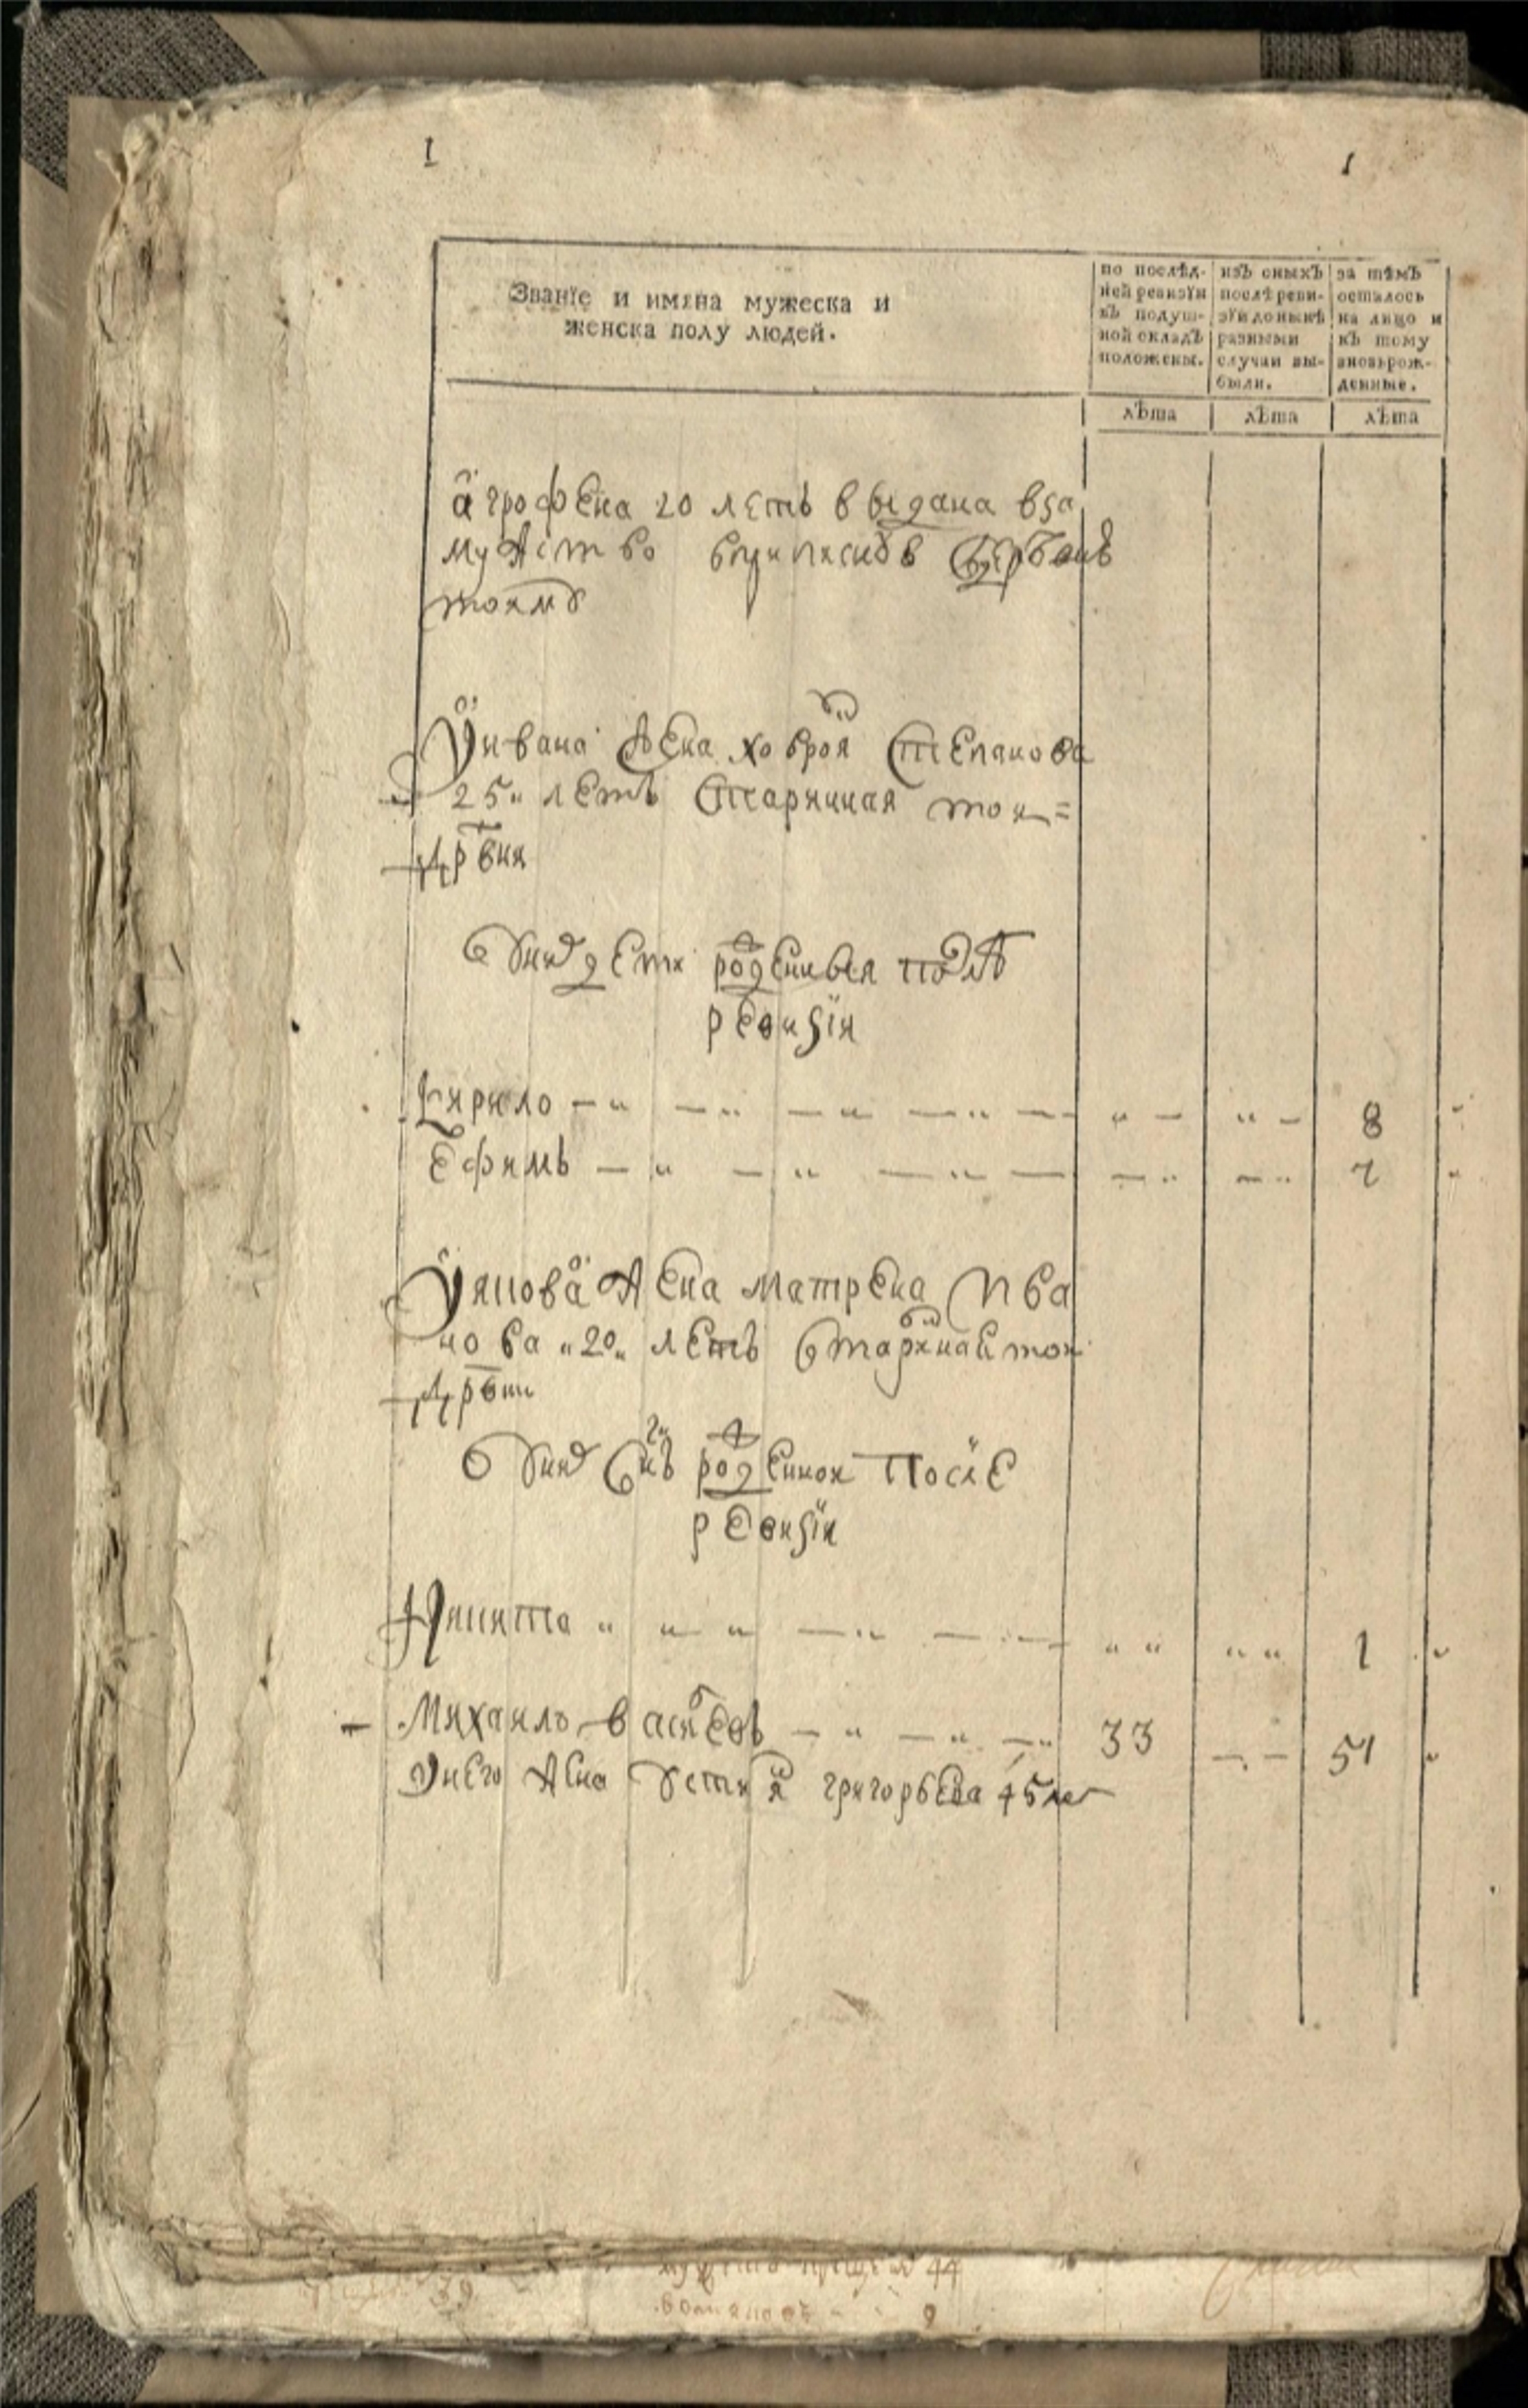 1 1
Званїе и имяна мужеска и
женска полу людей.
по послѣд-
ней ревизїи
въ подуш-
ной окладъ
положены.
изъ оныхъ
послѣ реви-
зїи донынѣ
разными
случаи вы-
были.
за тѣмъ
осталось
на лицо и
къ тому
вновь рож-
денные.
лѣта лѣта лѣта
агрофена 20 леть выдана вза
мужство
тоям
У ивана жена ховроя степанова
25 леть старинная тои =
дрвни
У них дети роденныя после
ревизїи
Кирило 8
Ефимъ 7
У якова жена матрена ива
нова 20 леть старинная тои
дрвни
У них снъ роденнои после
ревизїи
Никита 1
Михаило васильевъ 33 51
У него жена устиня григорьева 45 лет